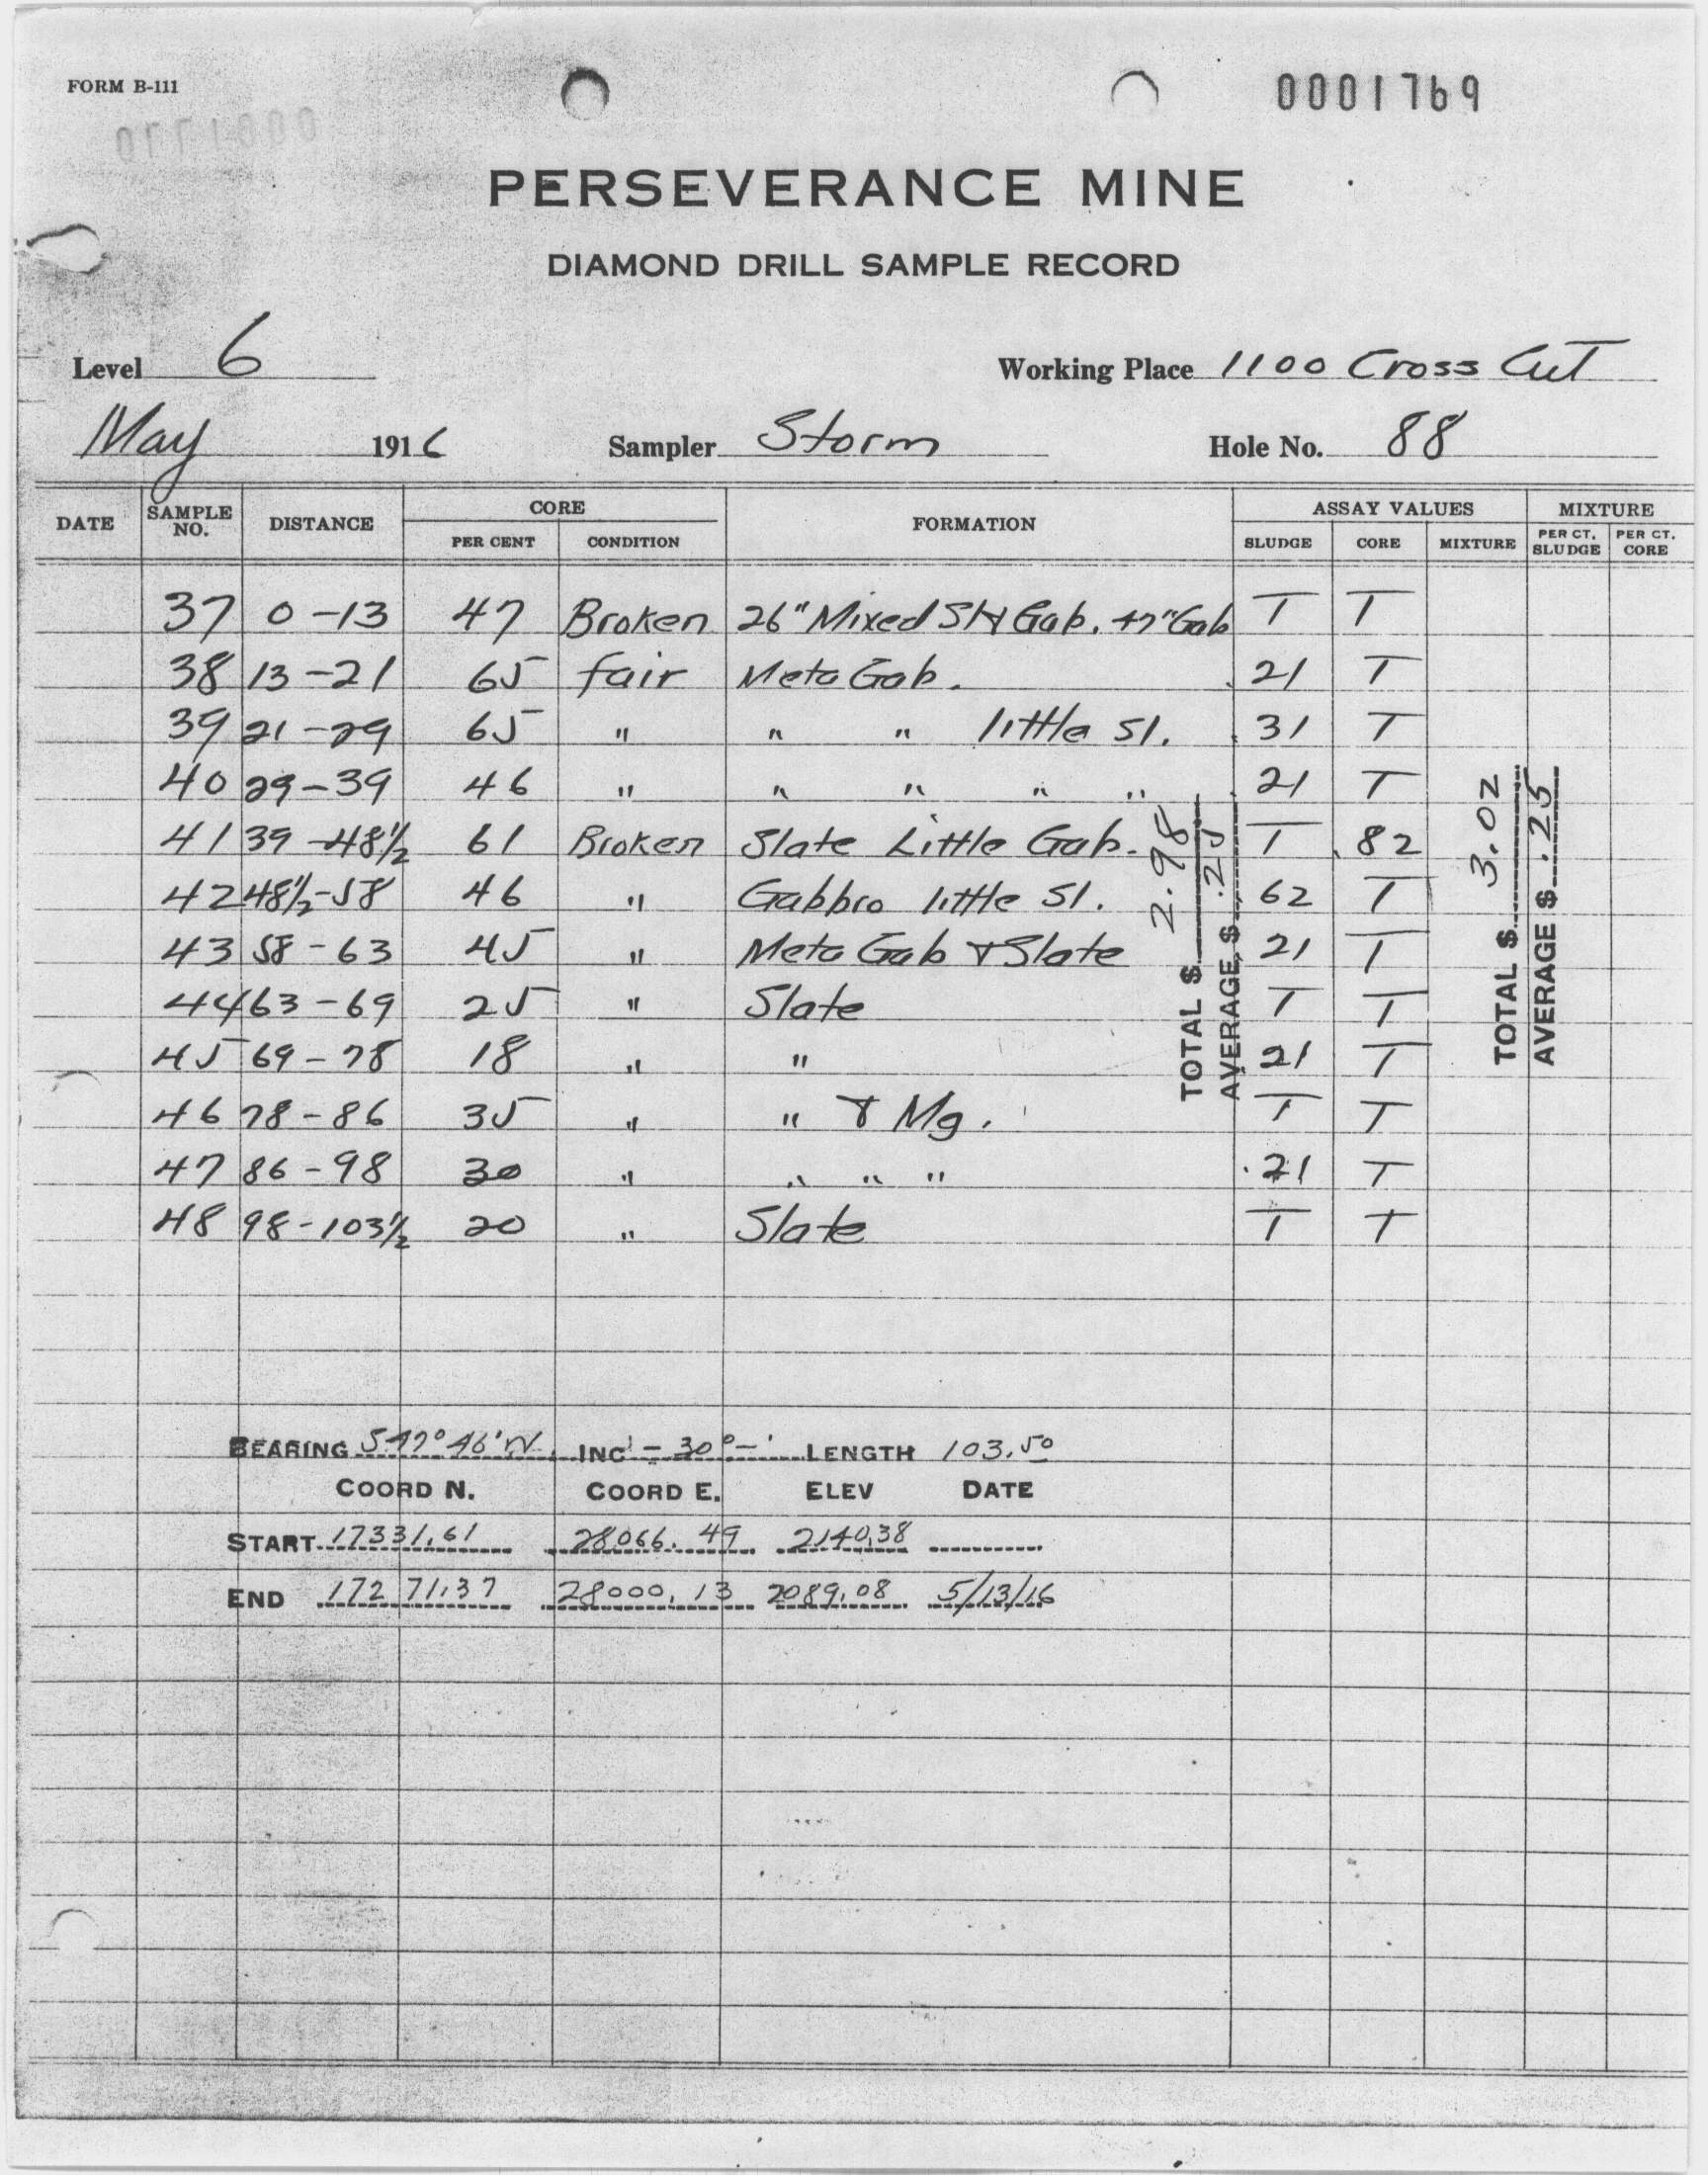 FORM B-111
0001769
0001770
PERSEVERANCE MINE
DIAMOND DRILL SAMPLE RECORD
Level 6 Working Place 1100 Cross Cut
May 1916 Sampler Storm Hole No. 88
DATE SAMPLE NO. DISTANCE CORE PER CENT CONDITION FORMATION ASSAY VALUES SLUDGE CORE MIXTURE MIXTURE PER CT. SLUDGE PER CT. CORE
37 0-13 47 Broken 26" Mixed Gab. 47" Gab T T
38 13-21 65 fair Meta Gab. .21 T
39 21-29 65 " " " little sl. .31 T
40 29-39 46 " " " " " .21 T
41 39-48½ 61 Broken Slate Little Gab. T .82
42 48½-58 46 " Gabbro little sl. .62 T
43 58-63 45 " Meta Gab & Slate 21 T
44 63-69 25 " Slate T T
45 69-78 18 " " 21 T
46 78-86 35 " " & Mg. T T
47 86-98 30 " " " " .21 T
48 98-103½ 20 " Slate T T
TOTAL $ 2.98
AVERAGE, $ .25
TOTAL $ 3.02
AVERAGE $ .25
BEARING S 47° 46' W. INC - 30° -' LENGTH 103.50
COORD N. COORD E. ELEV DATE
START 17331.61 28066.49 2140.38
END 17271.37 28000.13 2089.08 5/13/16